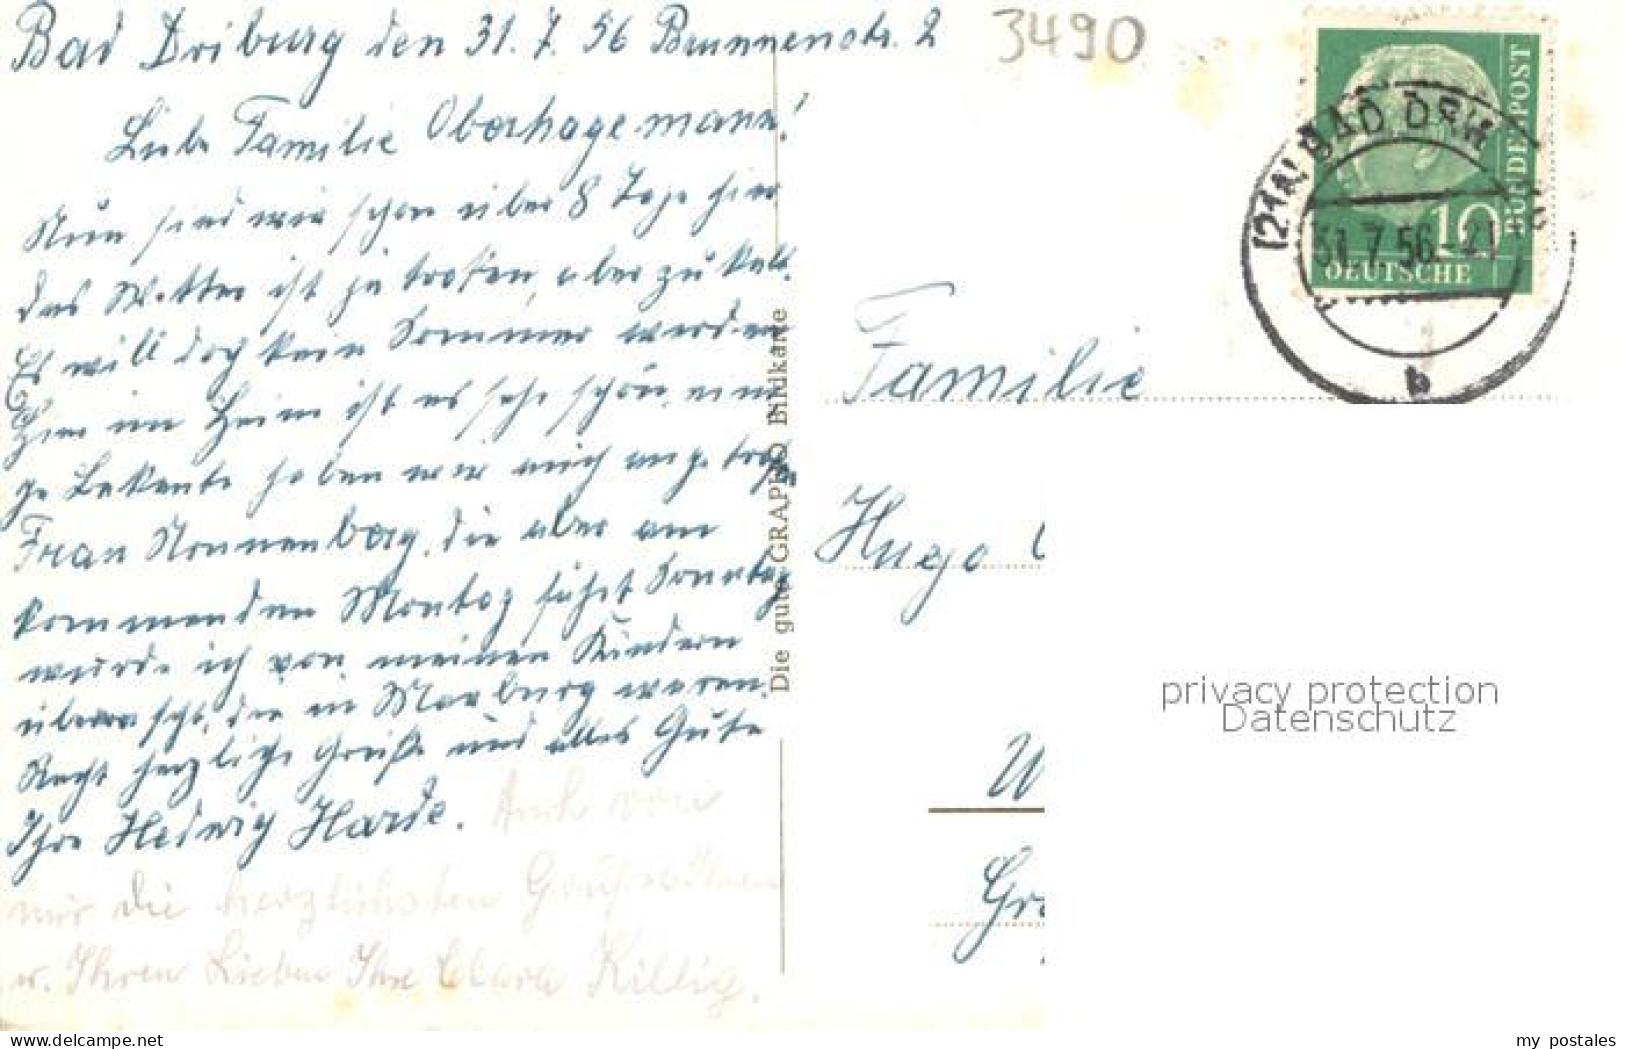 Bad Driburg den 31.7.56 Brunnenstr. 2
3490
Liebe Familie Oberhagemann!
Nun sind wir schon über 8 Tage hier
das Wetter ist ja trocken, aber zu kalt.
Es will doch kein Sommer werden
Hier im Heim ist es sehr schön, eini
ge Bekannte haben wir auch angetroffen
Frau Nonnenberg, die aber am
kommenden Montag fährt Sonntag
wurde ich von meinen Kindern
überrascht, die in Marburg waren.
Recht herzliche Grüße und alles Gute
Ihre Hedwig Harde.
Auch von
mir die herzlichsten Grüße Ihnen
u. Ihren Lieben Ihre Clara Killig.
Die gute GRAPHO Bildkarte
DEUTSCHE BUNDESPOST
10
(21a) BAD DRIB
31.7.56.-21
b
Familie
Hugo
W
Gr
privacy protection
Datenschutz
www.delcampe.net
my_postales